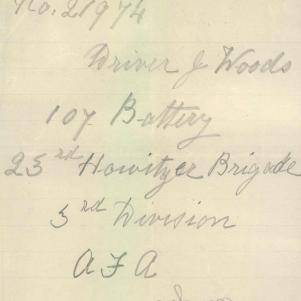 No. 21974
Driver J Woods
107 Battery
23rd Howitzer Brigade
3rd Division
A F A